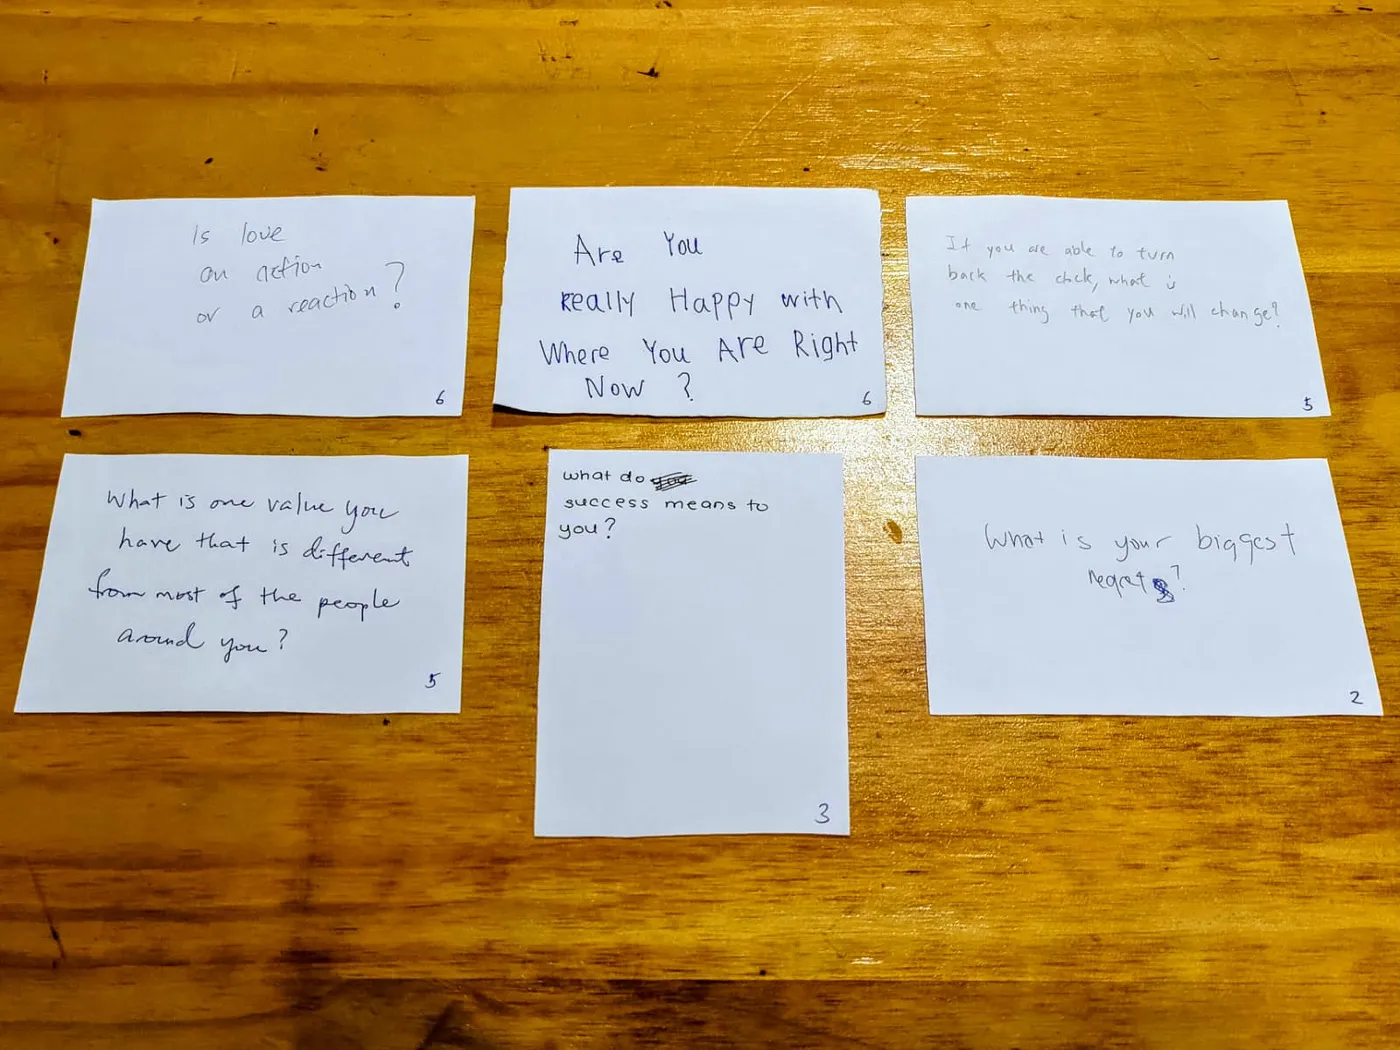 Is love
an action
or a reaction?
6
Are You
Really Happy with
Where You Are Right
Now ?
6
If you are able to turn
back the clock, what is
one thing that you will change?
5
What is one value you
have that is different
from most of the people
around you?
5
what do you
success means to
you?
3
What is your biggest
regret?
2